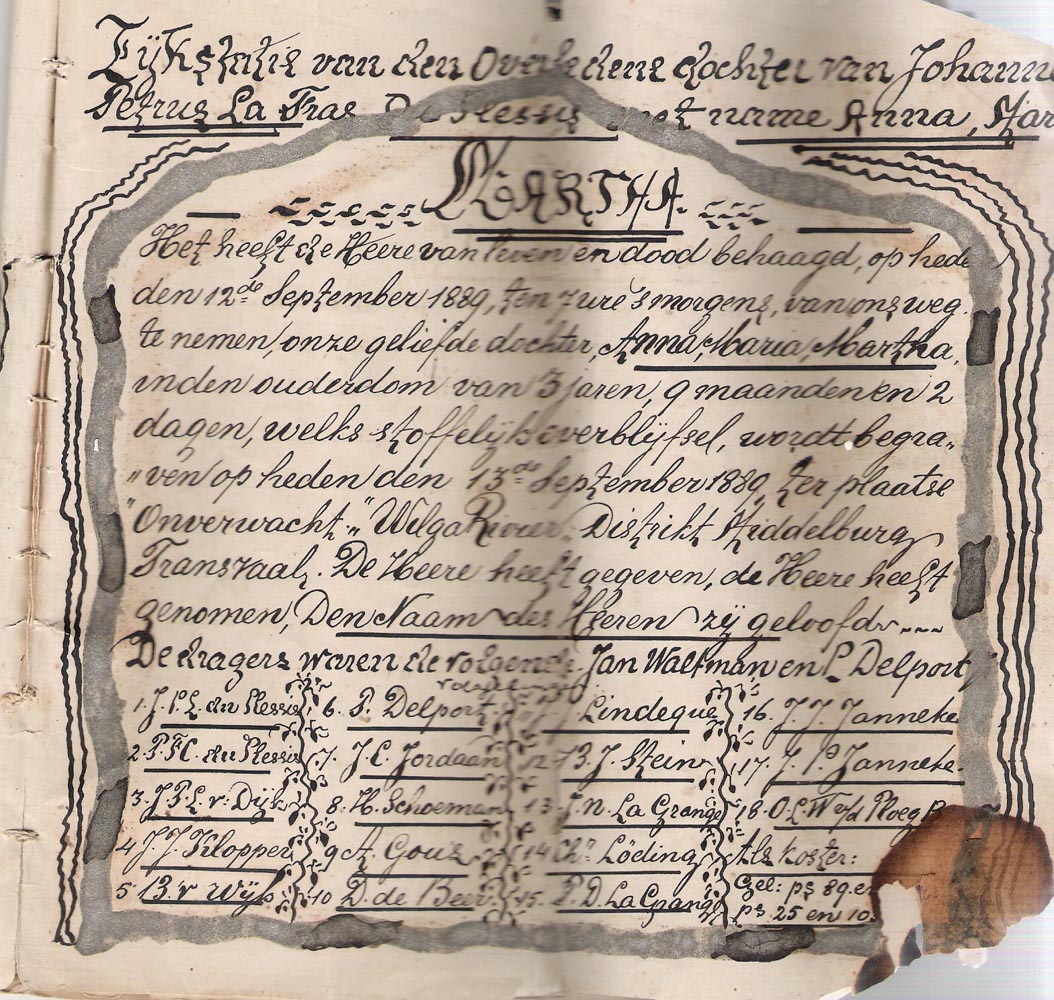 Lijkstatie van den Overledene dochter van Johanne
Petrus La Gras Du Plessis met name Anna, Mar
MARTHA.
Het heeft de Heere van leven en dood behaagd, op hede
den 12de September 1889, ten 7 ure 's morgens, van ons weg
te nemen, onze geliefde dochter, Anna, Maria, Martha,
in den ouderdom van 3 jaren, 9 maanden en 2
dagen, welks stoffelijk overblijfsel, wordt begra„
„ven op heden den 13de September 1889, ter plaatse
"Onverwacht" Wilge Rivier, Distrikt Middelburg
Transvaal. De Heere heeft gegeven, de Heere heeft
genomen, Den Naam des Heeren zij geloofd
De dragers waren de volgende. Jan Waltman en P. Delport
1. J. P. L. du Plessis 6. P. Delport Lindeque 16. J. J. Janneke
2. P. F. C. du Plessis 7. J. C. Jordaan 12 B. J. Stein 17. J. P. Janneke.
3. J. P. L. v. Dijk 8. H. Schoeman 13. La Grange 18. O. L. W. v/d Ploeg
4 J. J. Klopper 9 A. Gous 14 Chr. Löeding Als Koster:
5 B. v Wijk 10 D. de Beer 15. P. D. La Grange Gez: ps 89. en
ps 25 en 10